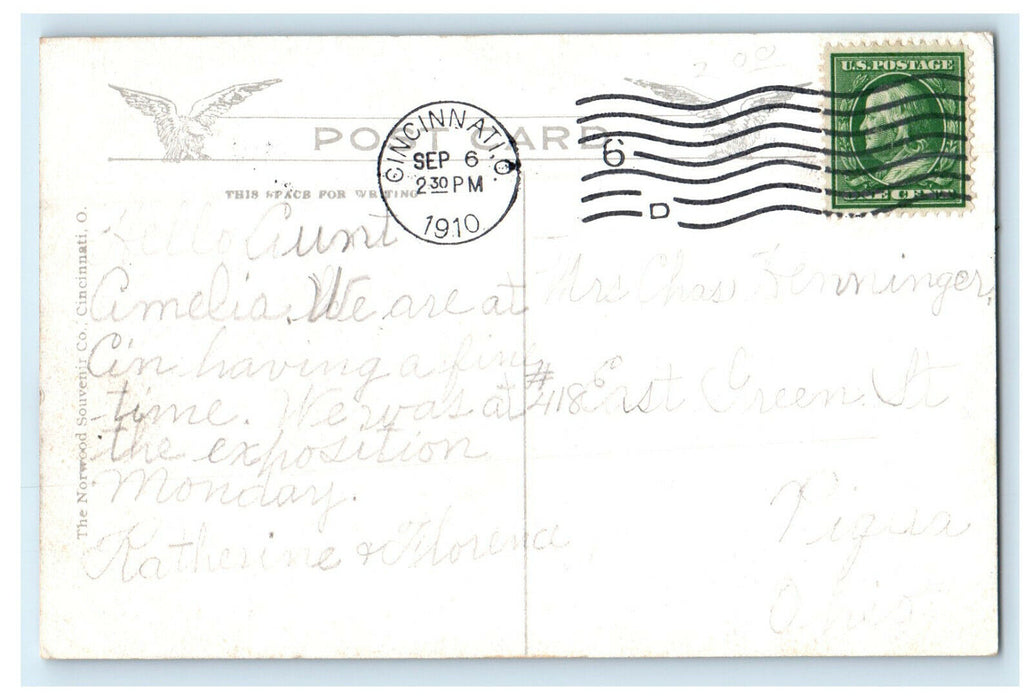 2 00
U.S. POSTAGE
POST CARD
CINCINNATI, O.
SEP 6
2 30 PM
1910
6
D
ONE CENT
THIS SPACE FOR WRITING
The Norwood Souvenir Co., Cincinnati, O.
Hello Aunt
Amelia. We are at
Cin having a fine
time. We was at
the exposition
Monday.
Katherine & Florence
Mrs Chas Henninger,
#418 East Green St
Piqua
Ohio